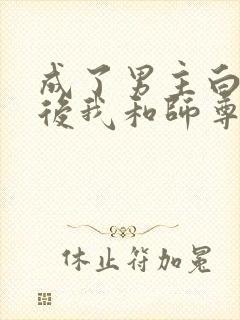 成了男主白
後我和師尊
休止符加冕